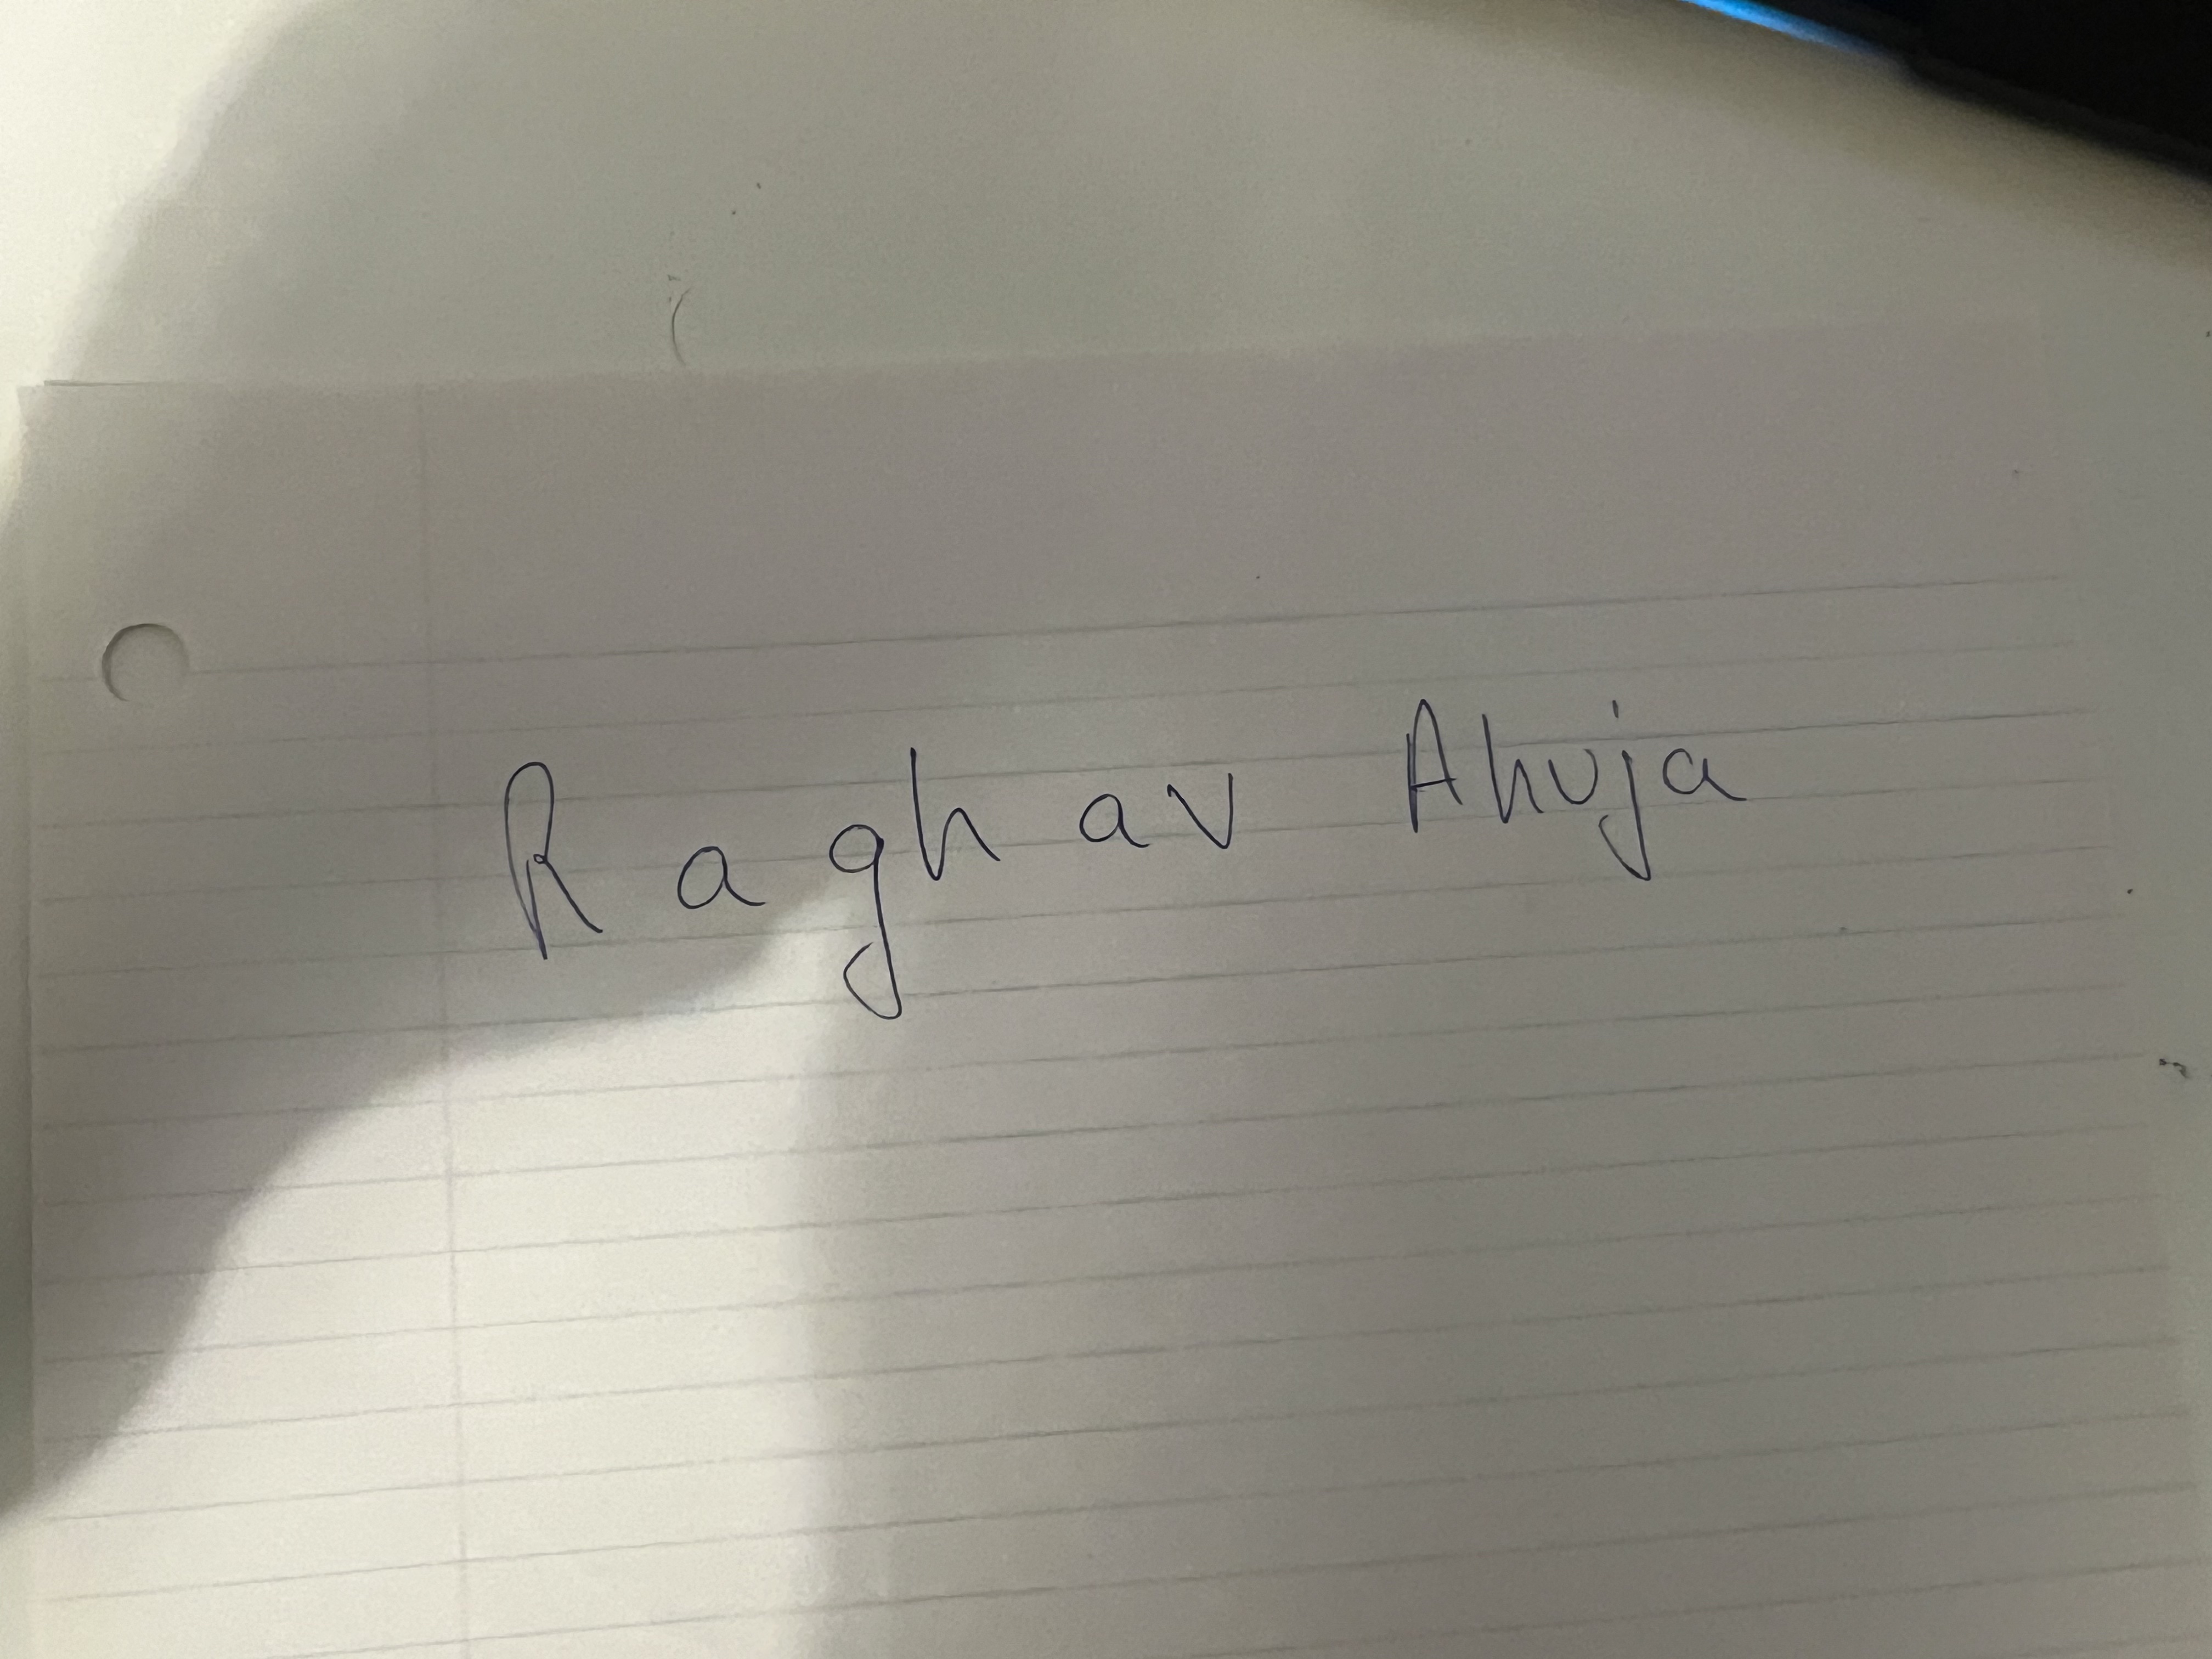 Raghav Ahuja